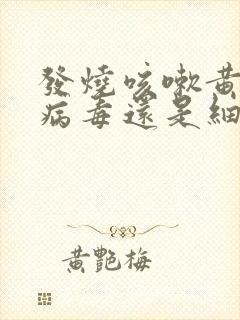 發燒咳嗽黃
病毒還是細
黃艷梅